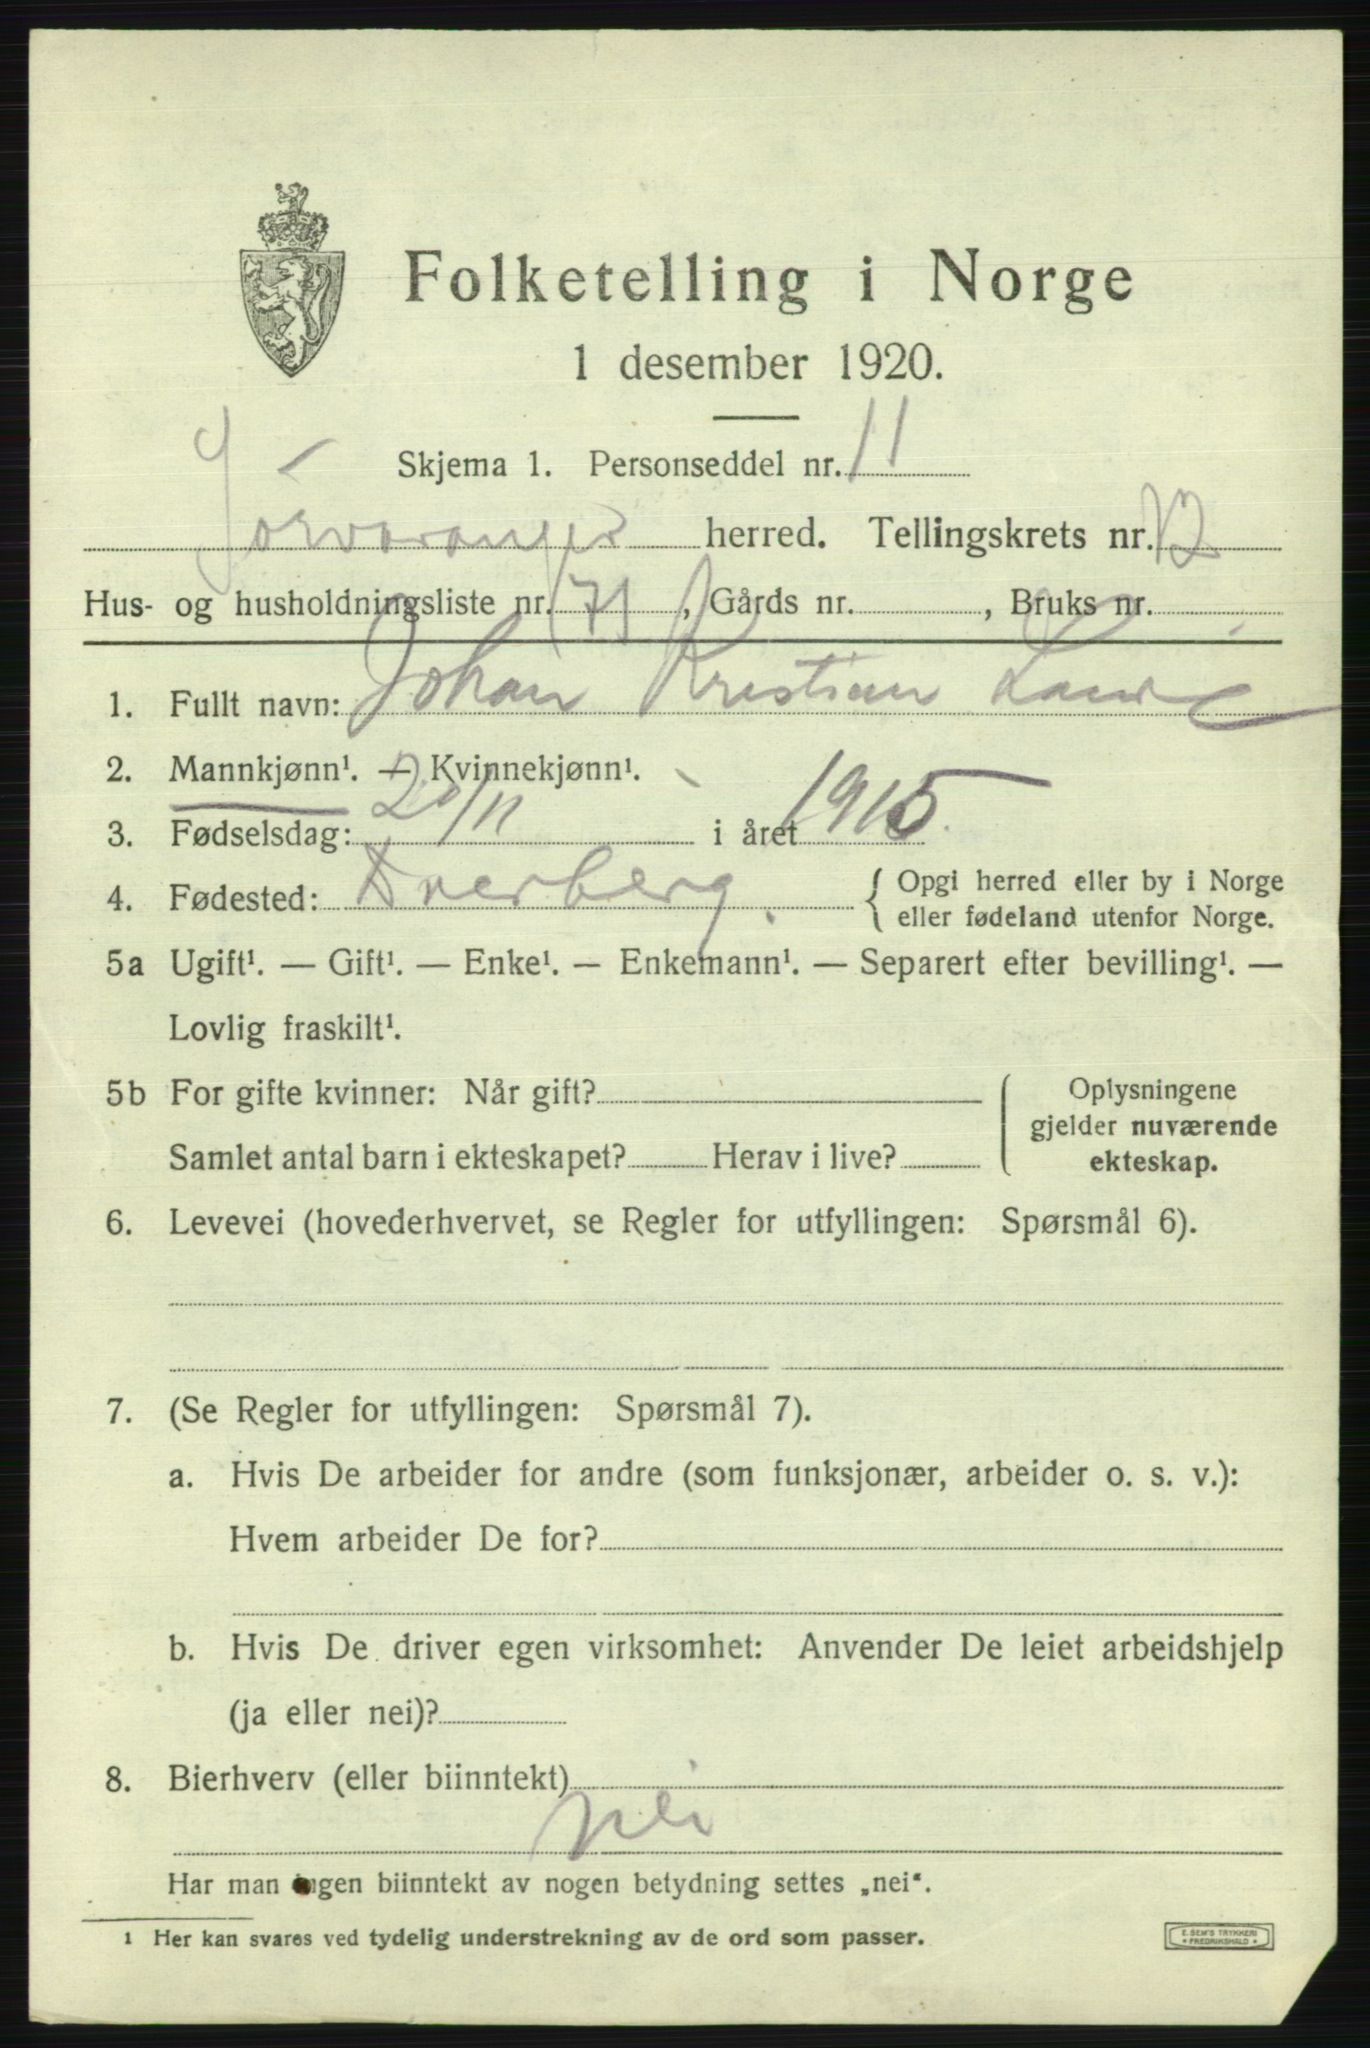 Folketelling i Norge
1 desember 1920.
Skjema 1. Personseddel nr. 11
Sørvaranger herred. Tellingskrets nr. 12
Hus- og husholdningsliste nr. 71, Gårds nr. , Bruks nr.
1. Fullt navn: Johan Kristian
2. Mannkjønn¹. — Kvinnekjønn¹.
3. Fødselsdag: 20/11 i året 1915
4. Fødested: Dverberg. { Opgi herred eller by i Norge
eller fødeland utenfor Norge.
5a Ugift¹. — Gift¹. — Enke¹. — Enkemann¹. — Separert efter bevilling¹. —
Lovlig fraskilt¹.
5b For gifte kvinner: Når gift?
Samlet antal barn i ekteskapet? Herav i live?
Oplysningene
gjelder nuværende
ekteskap.
6. Levevei (hovederhvervet, se Regler for utfyllingen: Spørsmål 6).
7. (Se Regler for utfyllingen: Spørsmål 7).
a. Hvis De arbeider for andre (som funksjonær, arbeider o. s. v.):
Hvem arbeider De for?
b. Hvis De driver egen virksomhet: Anvender De leiet arbeidshjelp
(ja eller nei)?
8. Bierhverv (eller biinntekt)
nei
Har man ingen biinntekt av nogen betydning settes „nei“.
¹ Her kan svares ved tydelig understrekning av de ord som passer.
E. SEM'S TRYKKERI
• FREDRIKSHALD •